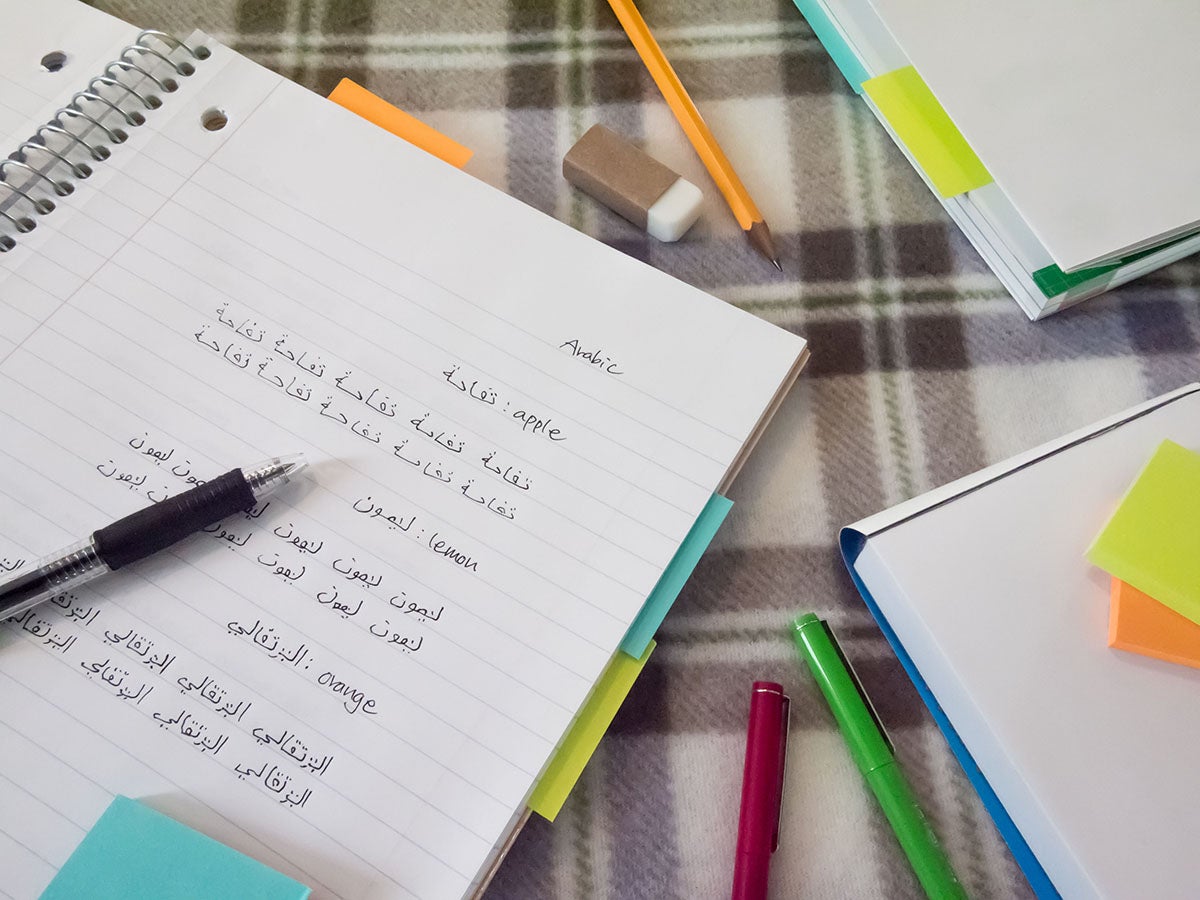 Arabic
تفاحة : apple
تفاحة تفاحة تفاحة تفاحة تفاحة
تفاحة تفاحة تفاحة تفاحة تفاحة
ليمون : lemon
ليمون ليمون ليمون ليمون
ليمون ليمون ليمون ليمون ليمون
البرتقالي : orange
البرتقالي البرتقالي البرتقالي
البرتقالي البرتقالي البرتقالي